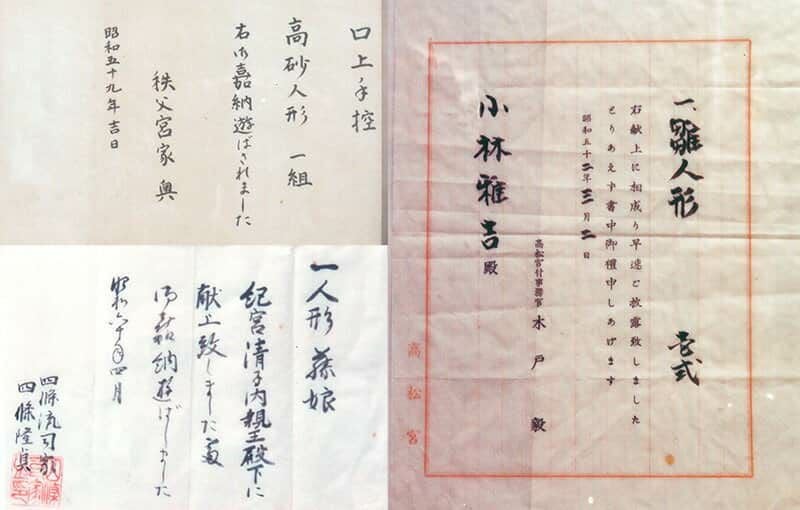 口上手控
高砂人形 一組
右御嘉納遊ばされました
秩父宮家 奥
昭和五十九年吉日
一 雛人形 壱式
右献上に相成り早速と披露致しました
とりあえず書中御禮申しあげます
昭和五十二年三月二日
高松宮付事務官 木戸 毅
小林雅吉殿
高松宮
一人形 藤娘
紀宮清子内親王殿下に
献上致しました高
御嘉納遊ばしました
昭和六十年四月
四條流司家
四條隆貞